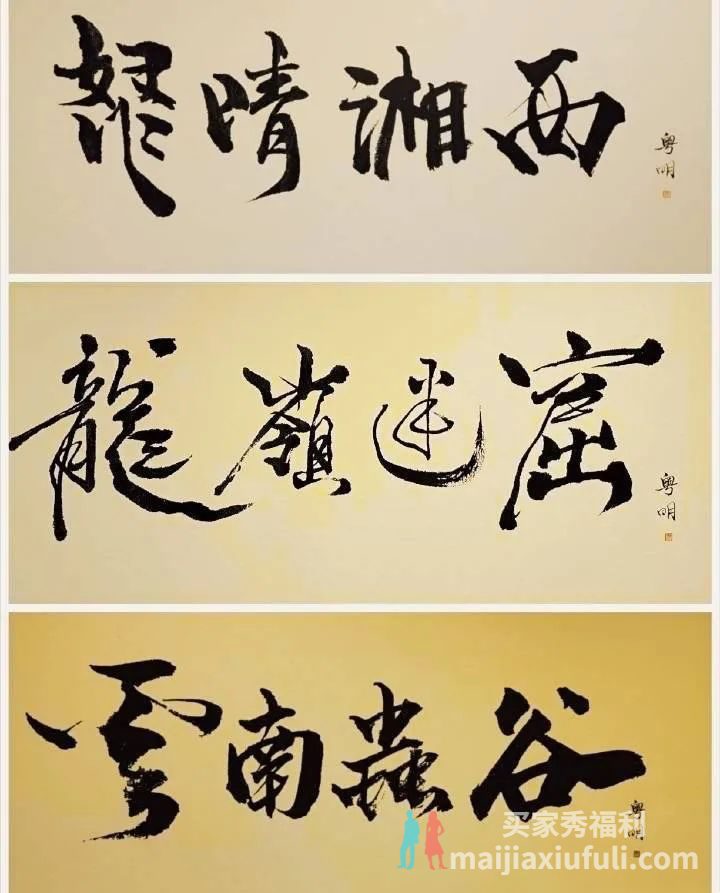 怒晴湘西
粤明
龍嶺迷窟
粤明
雲南蟲谷
粤明
买家秀福利
maijiaxiufuli.com